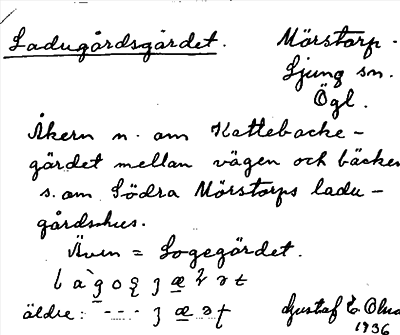 Ladugårdsgärdet. Mörstorp.
Ljung sn.
Ögl.
Åkern n. om Kattebacke-
gärdet mellan vägen och bäcken
s. om Södra Mörstorps ladu-
gårdshus.
Även = Logegärdet.
äldre:
Gustaf E. Olma
1936